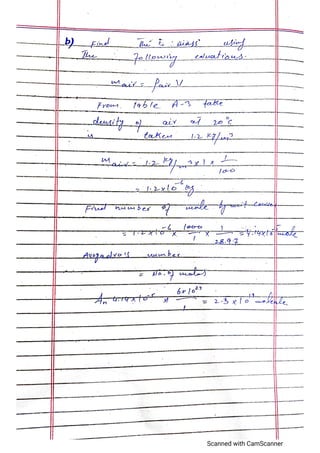 b) Find The air mass using
The following equations.
m air = ρair V
From table A-3 take
density of air at 20°c
is taken 1.2 kg/m3
m air = 1.2 kg/m3 x 1 x 1/100
= 1.2x10-6 kg
Find number of mole by unit
= 1.2x10-6 x 1000/1 x 1/28.97 = 4.14x10-5 mole
Avogadro's number
= No. of moles
An 4.14x10-5 x 6x1023/1 = 2.5x1019
Scanned with CamScanner